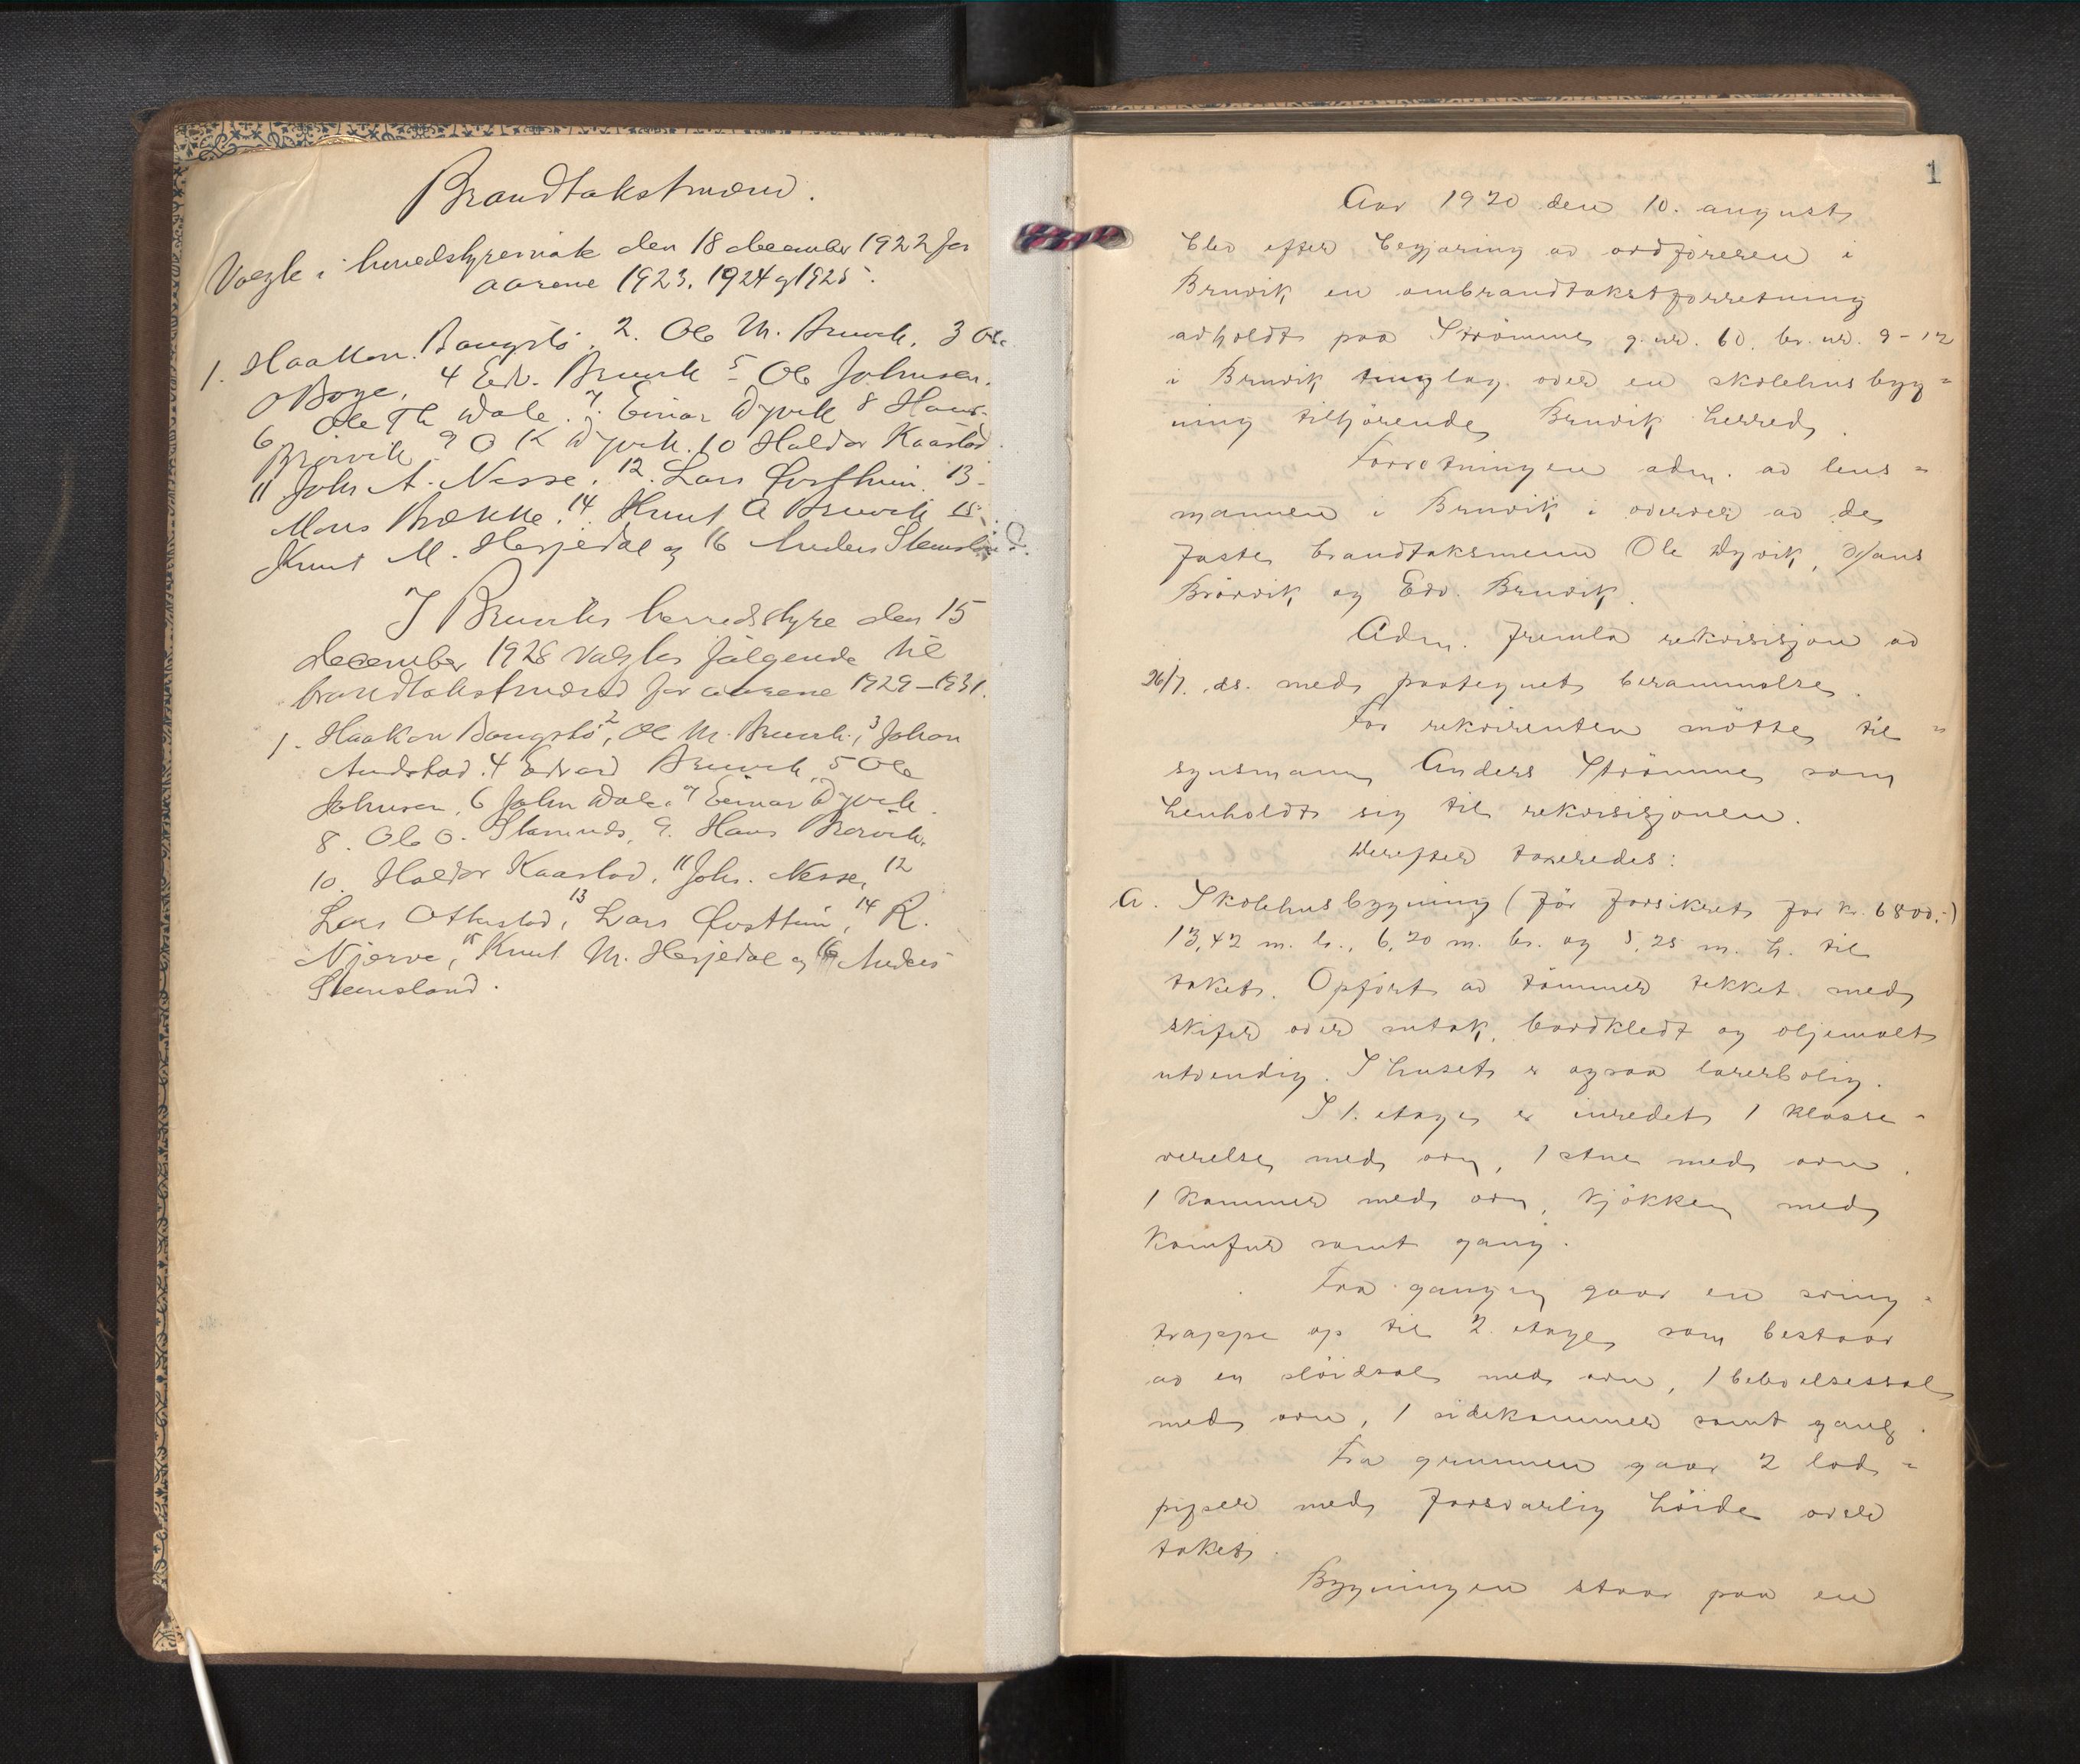 Brandtakstmænd.
Valgte i herredstyremöte den 18 december 1922 for
aarene 1923, 1924 og 1925.
1. Haakon Bangstö, 2. Ole M. Bruvik, 3 Ole
O Boge, 4 Edv. Bruvik 5 Ole Johnsen.
6 Ole Th Dale. 7. Einar Dyvik 8 Hans
Brörvik 9 O K Dyvik. 10 Haldor Kaarstad.
11 Johs A. Nesse. 12. Lars Øvsthun. 13.
Mons Brække. 14. Knut A Bruvik 15.
Knut M. Herfjedal og 16 Anders Stensland.
I Bruviks herredsstyre den 15
december 1928 valgtes følgende til
brandtakstmænd for aarene 1929–1931.
1. Haakon Bangstö, 2 Ole M. Bruvik, 3 Johan
Audstad. 4 Edvard Bruvik, 5 Ole
Johnsen, 6 John Dale, 7 Einar Dyvik.
8. Ole O. 9. Hans Brørvik.
10. Haldor Kaarstad, 11 Johs. Nesse, 12
Lars Otterstad, 13 Lars Øvsthun, 14 R.
Njerve, 15 Knut M. Herfjedal og 16 Anders
Stensland.
1
Aar 1920 den 10. august
blev efter begjæring av ordføreren i
Bruvik en ombrandtakstforretning
avholdt paa Strömme g.nr. 60. br. nr. 9 – 12
i Bruvik tinglag over en skolehusbyg=
ning tilhörende Bruvik herred.
Forretningen adm. av lens=
manden i Bruvik i overvær av de
faste brandtaksmenn Ole Dyvik, Hans
Brörvik og Edv. Bruvik.
Adm. fremla rekvisisjon av
26/7. ds. med paategnet berammelse.
For rekvirenten mötte til=
synsmann Anders Strömme som
henholdt sig til rekvisisjonen.
Derefter taxeredes:
A. Skolehusbygning (för forsikret for kr. 6800,-)
13,42 m. l., 6,20 m. br. og 5,25 m. h. til
taket. Opfört av tömmer tekket med
skifer over sutak, bordkledt og oljemalt
utvendig. I huset er ogsaa lærerbolig.
I 1. etage er inredet 1 klasse=
verelse med ovn, 1 stue med ovn,
1 kammer med ovn, kjökken med
komfur samt gang.
Fra gangen gaar en sving=
trappe op til 2. etage som bestaar
av en slöidsal med ovn, 1 beboelsessal
med ovn, 1 sidekammer samt gang.
Fra grunnen gaar 2 lod=
piper med forsvarlig höide over
taket.
Bygningen staar paa en